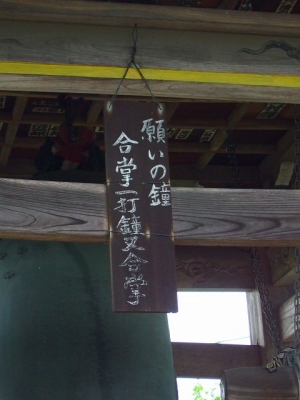 願いの鐘
合掌一打鐘又合掌